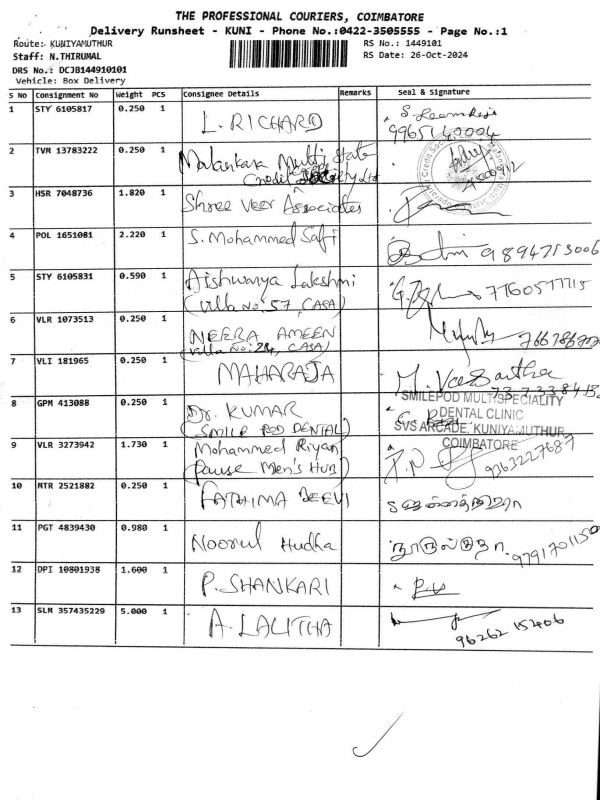 THE PROFESSIONAL COURIERS, COIMBATORE
Delivery Runsheet - KUNI - Phone No.:0422-3505555 - Page No.:1
Route: KUNIYAMUTHUR
RS No.: 1449101
Staff: N.THIRUMAL
RS Date: 26-Oct-2024
DRS No.: DCJB144910101
Vehicle: Box Delivery
S No Consignment No Weight PCS Consignee Details Remarks Seal & Signature
1 STY 6105817 0.250 1 L. RICHARD
9965140004
2 TVM 13783222 0.250 1 Malankara Multi State
Credit Society Ltd
3 HSR 7048736 1.820 1 Shree Veer Associates
4 POL 1651081 2.220 1 S. Mohammed Safi 9894713006
5 STY 6105831 0.590 1 Aishwarya Lakshmi
(Villa No: 57, CASA)
6 VLR 1073513 0.250 1 NEERA AMEEN
(Villa No: 24, CASA)
7 VLI 181965 0.250 1 MAHARAJA M. Vasantha
8 GPM 413088 0.250 1 Dr. KUMAR
(SMILE POD DENTAL)
SMILEPOD MULTISPECIALITY
DENTAL CLINIC
SVS ARCADE, KUNIYAMUTHUR
COIMBATORE
9 VLR 3273942 1.730 1 Mohammed Riyan
(Pause Men's Hub) 9363227687
10 MTR 2521882 0.250 1 FATHIMA BEEVI
11 PGT 4839430 0.980 1 Noorul Hudha நூருல்ஹுதா. 9791701150
12 DPI 10801938 1.600 1 P. SHANKARI
13 SLM 357435229 5.000 1 A. LALITHA 96262 15406